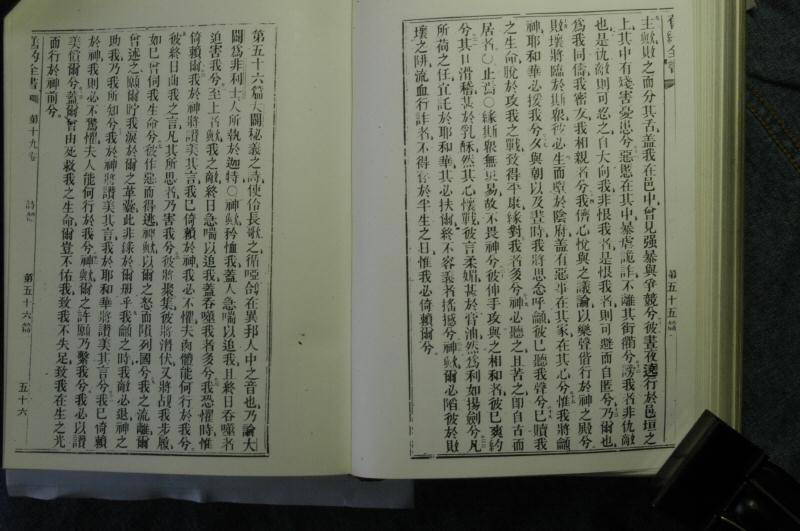 舊約全書
主歟敗之而分其舌蓋我在邑中曾見强暴與爭競兮彼晝夜遶行於邑垣之
上其中有殘害憂患兮惡慝在其中暴虐詭詐不離其街衢兮謗我者非仇敵
也是仇敵則可忍之自大向我非恨我者是恨我者則可避而自匿兮乃爾也
為我同儔我密友我相親者兮我儕心悅與之議論以樂聲偕行於神之殿兮
敗壞將臨於斯眾彼必生而墮於陰府蓋有惡事在其家在其心兮惟我將籲
神耶和華必援我兮夕與朝以及晝時我將思念呼籲彼已聽我聲兮已贖我
之生命脫於攻我之戰致得平康緣對我者多兮神必聽之且苦之即自古而
居者〇止焉〇緣斯眾無更易故不畏神兮彼伸手攻與之相和者彼已爽約
兮其口滑稽甚於乳酥然其心懷戰彼言柔媚甚於膏油然為利如揚劍兮凡
所荷之任宜託於耶和華其必扶爾終不容義者搖撼兮神歟爾必陷彼於敗
壞之阱流血行詐者不得存於半生之日惟我必倚賴爾兮
第五十五篇
第五十六篇大闢秘義之詩使伶長歌之循啞鴿在異邦人中之音也乃論大
闢為非利士人所執於迦特〇神歟矜恤我蓋人急喘以追我且終日吞噬者
迫害我兮至上者歟我之敵終日急喘以追我蓋吞噬我者多兮我恐懼時惟
倚賴爾我於神將讚美其言我已倚賴於神我必不懼夫肉體能何行於我兮
彼終日曲我之言凡其所思者乃害我兮彼將聚集彼將潛伏又將覘我步履
如已曾伺我生命兮彼作惡而得逃神歟以爾之怒而隕列國兮我之流離爾
曾述之願爾貯我淚於爾之革囊此非錄於爾冊乎我籲之時我敵必退神之
助我乃我所知兮我於神將讚美其言我於耶和華將讚美其言兮我已倚賴
於神我則必不驚懼夫人能何行於我兮神歟爾之許願乃繫我兮我必以讚
美償爾兮蓋爾曾由死救我之生命爾豈不佑我致我不失足致我在生之光
而行於神前兮
舊約全書
第十九卷
詩篇
第五十六篇
五十六